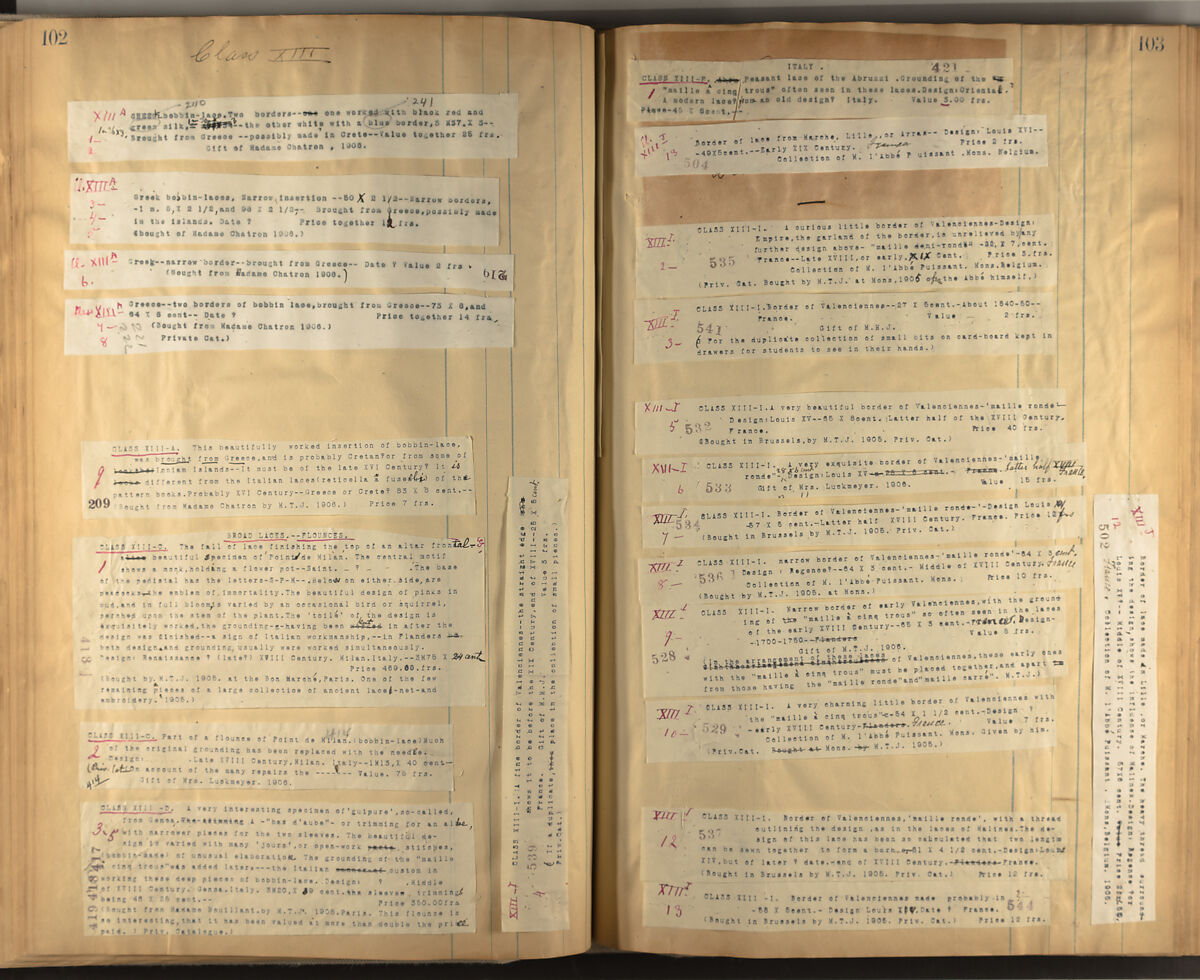 102
Class XIII
2110
241
XIII A
GREEK bobbin-lace. Two borders-- one worked with black red and
green silk, --the other white with a blue border, 5 X57.X 5--
Brought from Greece --possibly made in Crete--Value together 25 frs.
Gift of Madame Chatron , 1906.
1—
2
Cl. XIII A
Greek bobbin-laces, Narrow insertion --50 X 2 1/2--Narrow borders,
-1 m. 6,X 2 1/2,and 96 X 2 1/2,- Brought from Greece,possibly made
in the islands. Date ? Price together 12 frs.
(Bought of Madame Chatron 1906.)
3—
4—
5
Cl. XIII A
Greek--narrow border--brought from Greece-- Date ? Value 2 frs .
(Bought from Madame Chatron 1906.)
6.
219
Class XIII A
Greece--two borders of bobbin lace,brought from Greece--73 X 6,and
64 X 6 cent-- Date ? Price together 14 frs.
(Bought from Madame Chatron 1906.)
Private Cat.)
7—
8
221
222
CLASS XIII-A. This beautifully worked insertion of bobbin-lace,
was brought from Greece,and is probably Cretan?or from some of
Ionian Islands--It must be of the late XVI Century? It is
different from the Italian laces(reticella & fuseli) of the
pattern books.Probably XVI Century--Greece or Crete? 83 X 8 cent.--
(Bought from Madame Chatron by M.T.J. 1906.) Price 7 frs.
9
209
BROAD LACES.--FLOUNCES.
CLASS XIII-C. The fall of lace finishing the top of an altar frontal-
beautiful specimen of Point de Milan. The central motif
shows a monk,holding a flower pot--Saint. - ? - .The base
of the pedistal has the letters-S-P-M--.Below on either side,are
peacocks,the emblem of immortality.The beautiful design of pinks in
bud,and in full bloom,is varied by an occasional bird or squirrel,
perched upon the stem of the plant.The 'toilé' of the design is
exquisitely worked,the grounding-g-having been put in after the
design was finished--a sign of Italian workmanship,--in Flanders
both design,and grounding,usually were worked simultaneously.
Design: Renaissance ? (late?) XVIII Century. Milan.Italy.--3M75 X 24 cent
Price 469.60.frs.
(Bought by M.T.J. 1905. at the Bon Marché,Paris. One of the few
remaining pieces of a large collection of ancient lace,-net-and
embroidery. 1905.)
1
CLASS XIII-C. Part of a flounce of Point de Milan.(bobbin-lace)Much
of the original grounding has been replaced with the needle.
Design: .Late XVIII Century,Milan. Italy--1M13,X 40 cent--
On account of the many repairs the ---- Value. 75 frs.
Gift of Mrs. Luckmeyer. 1906.
2
414
CLASS XIII -D. A very interesting specimen of'guipure',so-called,
from Genoa. A -"bas d'aube"- or trimming for an albe,
with narrower pieces for the two sleeves. The beautiful de-
sign is varied with many 'jours',or open-work , stitches,
bobbin-made, of unusual elaboration. The grounding of the "maille
cinq trous"was added later---the Italian custom in
working these deep pieces of bobbin-lace. Design: ? .Middle
of XVIII Century. Genoa.Italy. 3M20,X 39 cent.the sleeve, trimming
being 48 X 25 cent.-- Price 350.00frs
(Bought from Madame Nouillant.by M.T.J. 1905.Paris. This flounce is
so interesting,that it has been valued at more than double the price
paid. ( Priv. Catalogue.)
3-5
419 418 417
CLASS XIII-I. (A fine border of Valenciennes--the straight edge
shows it to be before the XIX Century,end of XVIII--25 X 5 cent
France. Gift of M.H.J. Value 3 frs.
( If a duplicate, place in the collection of small pieces.)
Priv.Cat.)
XIII-I
4
539
103
ITALY .
421
CLASS XIII-F. Peasant lace of the Abruzzi .Grounding of the
"maille à cinq trous" often seen in these laces.Design:Oriental.
A modern lace?on an old design? Italy. Value 5.00 frs.
45 X 6cent.--
1
Cl. XIII I
13
504
Border of lace from Marche, Lille,.or Arras-- Design: Louis XVI--
-49X5cent.--Early XIX Century. France Price 2 frs.
Collection of M. l'Abbé Puissant .Mons. Belgium.
CLASS XIII-I. A curious little border of Valenciennes-Design:
Empire,the garland of the border,is unrelieved by any
further design above- "maille demi-ronde" -32,X 7,cent.
France--Late XVIII,or early XIX Cent. Price 5.frs.
Collection of M. l'Abbé Puissant. Mons.Belgium.
(Priv. Cat. Bought by M.T.J. at Mons,1905 of the Abbé himself.)
XIII I.
2—
535
CLASS XIII-I.Border of Valenciennes--27 X 5cent.-About 1840-50--
France. Value 2 frs.
Gift of M.H.J.
( For the duplicate collection of small bits on card-board kept in
drawers for students to see in their hands.)
XIII I
3—
541
CLASS XIII-I.A very beautiful border of Valenciennes-'maille ronde'-
Design:Louis XV--65 X 8cent.(Latter half of the XVIII Century.
France. Price 40 frs.
(Bought in Brussels,by M.T.J. 1905. Priv. Cat.)
XIII-I
5
532
CLASS XIII-I. A very exquisite border of Valenciennes-'maille
ronde'-Design:Louis XV- France. latter half XVIII
Gift of Mrs. Luckmeyer. 1906. Value 15 frs.
XIII-I
6
533
CLASS XIII-I. Border of Valenciennes-'maille ronde-'-Design Louis XV
-57 X 5 cent.-Latter half XVIII Century. France. Price 12 frs
(Bought in Brussels by M.T.J. 1905. Priv. Cat.)
XIII-I
7—
534
CLASS XIII-I. narrow border of Valenciennes-'maille ronde'-84 X 3 cent.
Design : Regence?--64 X 3 cent.- Middle of XVIII Century. France
Collection of M. l'Abbé Puissant. Mons. Price 10 frs.
(Bought by M.T.J. 1905. at Mons.)
XIII-I
8—
536
CLASS XIII-I. Narrow border of early Valenciennes,with the ground
ing of the "maille à cinq trous" so often seen in the laces
of the early XVIII Century--65 X 3 cent.-France. Design-
-1700-1750--Flanders Value 5 frs.
Gift of M.T.J. 1906.
(In the arrangement of these laces of Valenciennes,these early ones
with the "maille à cinq trous" must be placed together,and apart
from those having the "maille ronde"and"maille carré". M.T.J.)
XIII I
9—
528
CLASS XIII-I. A very charming little border of Valenciennes with
the "maille à cinq trous"--54 X 1 1/2 cent.-Design ?
-early XVIII Century-Flanders. France. Value 7 frs.
Collection of M. l'Abbé Puissant. Mons. Given by him.
(Priv.Cat. Bought at Mons. by M.T.J. 1905.)
XIII I
10—
529
CLASS XIII-I. Border of Valenciennes,'maille ronde', with a thread
outlining the design,as in the laces of Malines.The de-
sign of this lace has been so calculated that two lengths
can be sewn together to form a band,or 51 X 4 1/2 cent.-Design:Louis
XIV,but of later ? date.-end of XVIII Century.-Flanders-France.
(Bought in Brussels,by M.T.J. 1905. Priv. Cat.) Price 12 frs.
XIII I
12
537
CLASS XIII -I. Border of Valenciennes made probably in
-58 X 5cent.- Design Louis XIV.Date ? France.
(Bought in Brussels by M.T.J. 1905. Priv. Cat.) Price 12 frs.
XIII I
13
544
Border of lace made in Lille ,or Marche. The heavy thread surround-
ing the design,shows the influence of Malines.Design: Regence ?or
Louis XIV?--Middle of XVIII Century. 67X6 cent.
France Collection of M. l'Abbé Puissant . Mons,Belgium. 1905.
XIII I
12
502